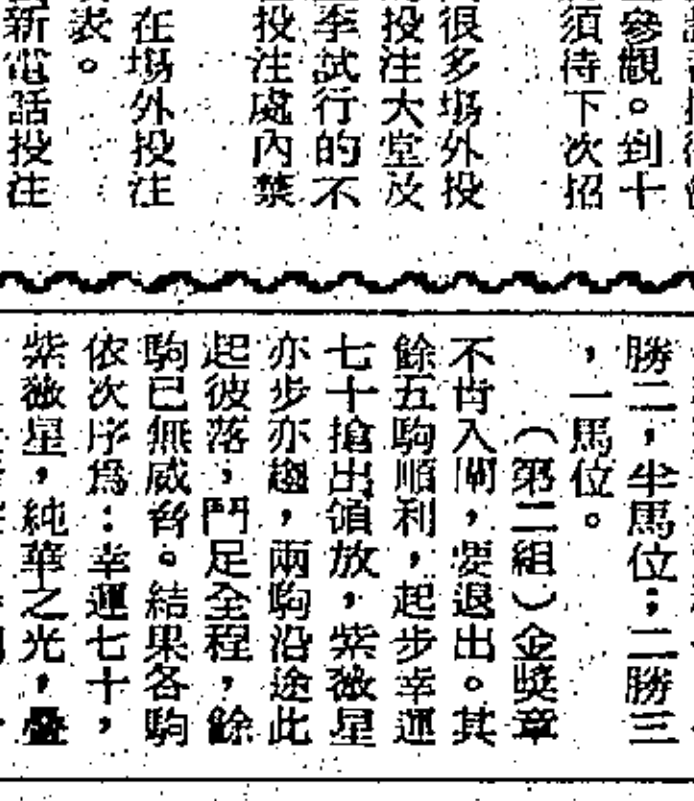 參觀。到十
須待下次招
很多場外投
投注大堂及
季試行的不
投注處內禁
在場外投注
表。
新電話投注
勝二，半馬位；二勝三
，一馬位。
（第二組）金獎章
不肯入閘，要退出。其
餘五駒順利，起步幸運
七十搶出領放，紫薇星
亦步亦趨，兩駒沿途此
起彼落，鬥足全程，餘
駒已無威脅。結果各駒
依次序爲：幸運七十，
紫薇星，純華之光，疊